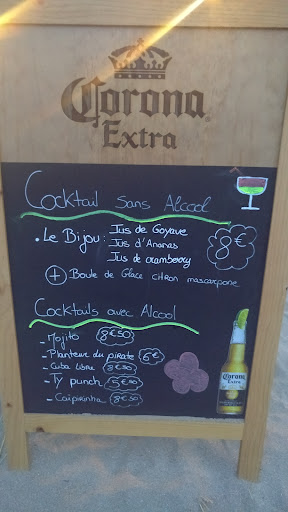 Corona
Extra
Cocktail sans Alcool
• Le Bijou : Jus de Goyave
Jus d'Ananas
Jus de cramberry
8€
+ Boule de Glace citron mascarpone
Cocktails avec Alcool
- Mojito 8€50
- Planteur du pirate 6€
- Cuba Libre 8€50
- Ty punch 5€50
- Caïpirinha 8€50
Corona
Extra